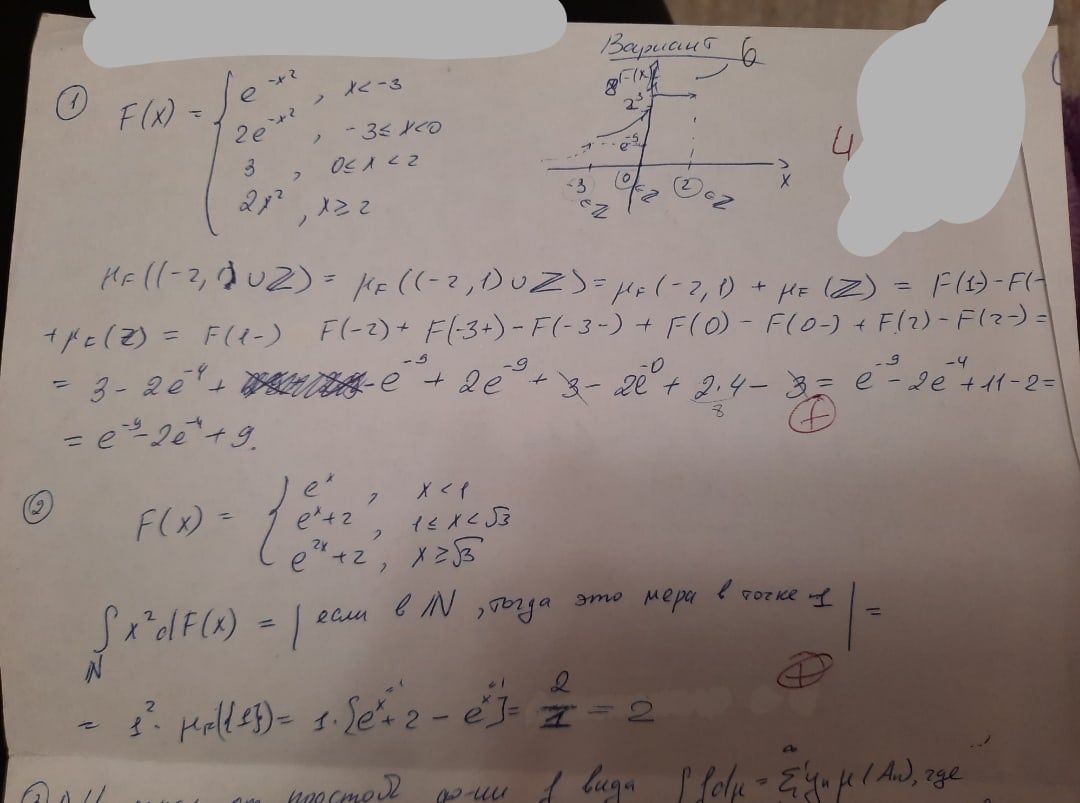 Вариант 6
① F(x) = { e^{-x²} , x<-3
2e^{-x²} , -3≤x<0
3 , 0≤x<2
2x² , x≥2
F(x)
8
2
3
e^{-9}
-3 0 2 x
∈Z ∈Z ∈Z
4
μ_F((-2,1)∪Z) = μ_F((-2,1)∪Z) = μ_F(-2,1) + μ_F(Z) = F(1-)-F(-
+μ_F(Z) = F(1-) F(-2)+ F(-3+)-F(-3-) + F(0) - F(0-) + F(2)-F(2-) =
= 3 - 2e^{-4} + -e^{-9} + 2e^{-9} + 3 - 2e^{-0} + 2·4 - 3 = e^{-9} - 2e^{-4} + 11 - 2 =
8
+
= e^{-9} - 2e^{-4} + 9.
② F(x) = { e^x , x<1
e^x+2 , 1≤x<√3
e^{2x}+2 , x≥√3
∫_N x²dF(x) = | если в N , тогда это мера в точке 1 | =
+
= 1² · μ_F({1}) = 1·[e^{x=1}+2 - e^{x=1}] = 2/1 = 2
простой ф-ии f вида ∫fdμ = Σ y_n μ(A_n), где